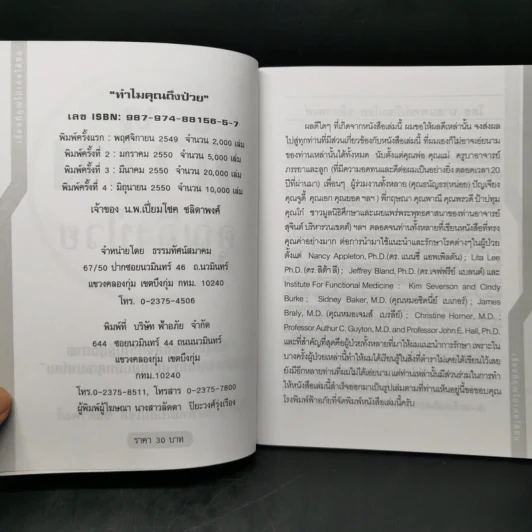 "ทำไมคุณถึงป่วย"
เลข ISBN: 987-974-88156-5-7
พิมพ์ครั้งแรก : พฤศจิกายน 2549 จำนวน 2,000 เล่ม
พิมพ์ครั้งที่ 2 : มกราคม 2550 จำนวน 5,000 เล่ม
พิมพ์ครั้งที่ 3 : มีนาคม 2550 จำนวน 20,000 เล่ม
พิมพ์ครั้งที่ 4 : มิถุนายน 2550 จำนวน 10,000 เล่ม
เจ้าของ น.พ.เปี่ยมโชค ชลิดาพงศ์
จำหน่ายโดย ธรรมทัศน์สมาคม
67/50 ปากซอยนวมินทร์ 46 ถ.นวมินทร์
แขวงคลองกุ่ม เขตบึงกุ่ม กทม. 10240
โทร. 0-2375-4506
พิมพ์ที่ บริษัท ฟ้าอภัย จำกัด
644 ซอยนวมินทร์ 44 ถนนนวมินทร์
แขวงคลองกุ่ม เขตบึงกุ่ม
กทม.10240
โทร.0-2375-8511, โทรสาร 0-2375-7800
ผู้พิมพ์ผู้โฆษณา นางสาวลัดดา ปิยะวงศ์รุ่งเรือง
ราคา 30 บาท
ผลดีใดๆ ที่เกิดจากหนังสือเล่มนี้ ผมขอให้ผลดีเหล่านั้น จงส่งผล
ไปสู่ทุกท่านที่มีส่วนเกี่ยวข้องกับหนังสือเล่มนี้ ที่ผมเองก็ไม่อาจเอ่ยนาม
ของท่านเหล่านั้นได้ทั้งหมด นับตั้งแต่คุณพ่อ คุณแม่ ครูบาอาจารย์
ภรรยาและลูก (ที่มีความอดทนและดีต่อผมเป็นอย่างยิ่ง ตลอดเวลา 20
ปีที่ผ่านมา) เพื่อนๆ ผู้ร่วมงานทั้งหลาย (คุณธนัญธร(หน่อย) ปัญเจียง
คุณจูดี้ คุณเอก คุณยอด ฯลฯ) พี่กฤษณา คุณพาณี คุณพรวดี ป้าปทุม
คุณโก้ ชาวมูลนิธิศึกษาและเผยแพร่พระพุทธศาสนาของท่านอาจารย์
สุจินต์ บริหารวนเขตต์) ฯลฯ ตลอดจนท่านทั้งหลายที่เขียนหนังสือที่ทรง
คุณค่าอย่างมาก ต่อการนำมาใช้แนะนำและรักษาโรคต่างๆในผู้ป่วย
ตั้งแต่ Nancy Appleton, Ph.D. (ดร. แนนซี่ แอพเพิลตัน); Lita Lee
Ph.D. (ดร. ลิต้า ลี) ; Jeffrey Bland, Ph.D. (ดร.เจฟฟรีย์ แบลนด์) และ
Institute For Functional Medicine : Kim Severson and Cindy
Burke ; Sidney Baker, M.D. (คุณหมอซิดนีย์ เบเกอร์) ; James
Braly, M.D. (คุณหมอเจมส์ เบรลีย์) ; Christine Horner, M.D. ;
Professor Authur C. Guyton, M.D. and Professor John E. Hall, Ph.D.
และที่สำคัญที่สุดคือผู้ป่วยทั้งหลายที่มาให้ผมแนะนำการรักษา เพราะใน
บางครั้งผู้ป่วยเหล่านี้ทำให้ผมได้เรียนรู้ในสิ่งที่ตำราไม่เคยได้เขียนไว้เลย
ยังมีอีกหลายท่านที่ผมไม่ได้เอ่ยนาม แต่ท่านเหล่านั้นมีส่วนร่วมในการทำ
ให้หนังสือเล่มนี้สำเร็จออกมาเป็นรูปเล่มตามที่ท่านเห็นอยู่นี้ขอขอบคุณ
โรงพิมพ์ฟ้าอภัยที่จัดพิมพ์หนังสือเล่มนี้ครับ